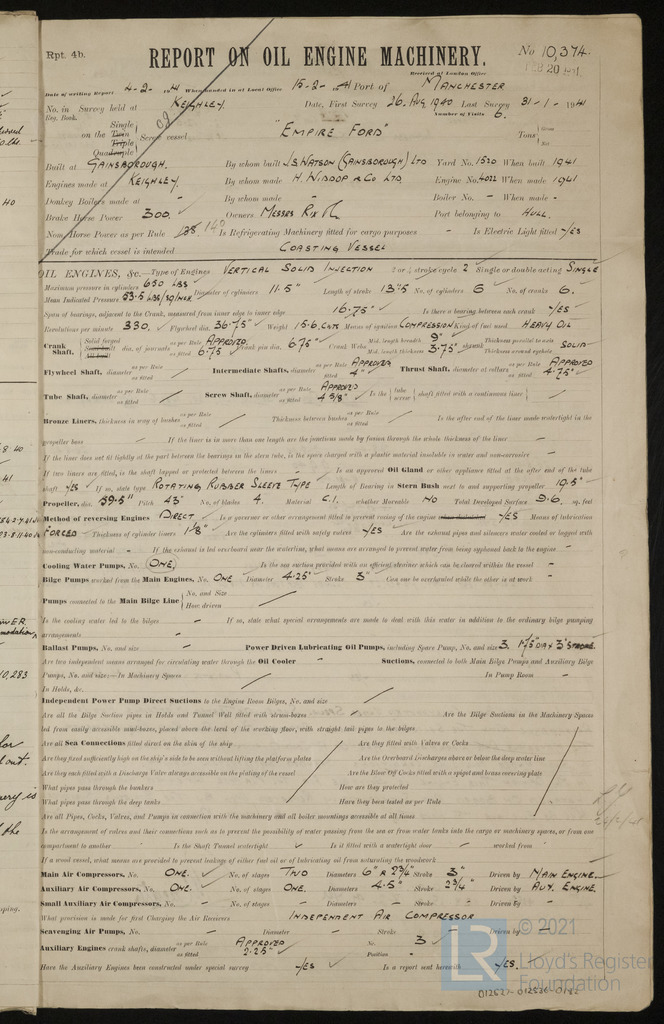 Rpt. 4b.
REPORT ON OIL ENGINE MACHINERY.
No 10,374.
Received at London Office FEB 20 1941
Date of writing Report 4-2-1941 When handed in at Local Office 15-2-41 Port of MANCHESTER
No. in Survey held at KEIGHLEY. Date, First Survey 26. Aug 1940 Last Survey 31-1-1941
Reg. Book. Number of Visits 6.
on the Single Twin Triple Quadruple Screw vessel "EMPIRE FORD" Tons Gross Net
Built at GAINSBOROUGH. By whom built J.S. WATSON (GAINSBOROUGH) LTD Yard No. 1530 When built 1941
Engines made at KEIGHLEY. By whom made H. WIDDOP & Co LTD. Engine No. 4022 When made 1941
Donkey Boilers made at - By whom made - Boiler No. - When made -
Brake Horse Power 300. Owners MESSRS RIX Port belonging to HULL.
Nom. Horse Power as per Rule 140 Is Refrigerating Machinery fitted for cargo purposes - Is Electric Light fitted YES
Trade for which vessel is intended COASTING VESSEL
OIL ENGINES, &c.—Type of Engines VERTICAL SOLID INJECTION 2 or 4 stroke cycle 2 Single or double acting SINGLE
Maximum pressure in cylinders 650 LBS Diameter of cylinders 11.5" Length of stroke 13.5 No. of cylinders 6 No. of cranks 6.
Mean Indicated Pressure 53.5 LBS/SQ/INCH
Span of bearings, adjacent to the Crank, measured from inner edge to inner edge 16.75" Is there a bearing between each crank YES
Revolutions per minute 330. Flywheel dia. 36.75" Weight 15.6 Cwts Means of ignition COMPRESSION Kind of fuel used HEAVY OIL
Crank Shaft, Solid forged Semi-built All built dia. of journals as per Rule APPROVED as fitted 6.75 Crank pin dia. 6.75" Crank Webs Mid. length breadth 9" Mid. length thickness 3.75" Thickness parallel to axis SOLID Thickness around eyehole
Flywheel Shaft, diameter as per Rule as fitted Intermediate Shafts, diameter as per Rule APPROVED as fitted 4" Thrust Shaft, diameter at collars as per Rule APPROVED as fitted 4.75"
Tube Shaft, diameter as per Rule as fitted Screw Shaft, diameter as per Rule APPROVED as fitted 4 5/8" Is the tube screw shaft fitted with a continuous liner
Bronze Liners, thickness in way of bushes as per Rule as fitted Thickness between bushes as per Rule as fitted Is the after end of the liner made watertight in the
propeller boss - If the liner is in more than one length are the junctions made by fusion through the whole thickness of the liner -
If the liner does not fit tightly at the part between the bearings in the stern tube, is the space charged with a plastic material insoluble in water and non-corrosive -
If two liners are fitted, is the shaft lapped or protected between the liners - Is an approved Oil Gland or other appliance fitted at the after end of the tube
shaft YES If so, state type ROTATING RUBBER SLEEVE TYPE Length of Bearing in Stern Bush next to and supporting propeller 19.5"
Propeller, dia. 59.5" Pitch 43" No. of blades 4. Material C.I. whether Moveable NO Total Developed Surface 9.6 sq. feet
Method of reversing Engines DIRECT Is a governor or other arrangement fitted to prevent racing of the engine when declutched YES Means of lubrication
FORCED Thickness of cylinder liners 1 1/8" Are the cylinders fitted with safety valves YES Are the exhaust pipes and silencers water cooled or lagged with
non-conducting material - If the exhaust is led overboard near the waterline, what means are arranged to prevent water from being syphoned back to the engine -
Cooling Water Pumps, No. ONE, Is the sea suction provided with an efficient strainer which can be cleared within the vessel -
Bilge Pumps worked from the Main Engines, No. ONE Diameter 4.25" Stroke 3" Can one be overhauled while the other is at work -
Pumps connected to the Main Bilge Line No. and Size How driven
Is the cooling water led to the bilges - If so, state what special arrangements are made to deal with this water in addition to the ordinary bilge pumping
arrangements -
Ballast Pumps, No. and size - Power Driven Lubricating Oil Pumps, including Spare Pump, No. and size 3. 1.75 DIA x 3" STROKE.
Are two independent means arranged for circulating water through the Oil Cooler - Suctions, connected to both Main Bilge Pumps and Auxiliary Bilge
Pumps, No. and size:—In Machinery Spaces In Pump Room -
In Holds, &c.
Independent Power Pump Direct Suctions to the Engine Room Bilges, No. and size
Are all the Bilge Suction pipes in Holds and Tunnel Well fitted with strum-boxes Are the Bilge Suctions in the Machinery Spaces
led from easily accessible mud-boxes, placed above the level of the working floor, with straight tail pipes to the bilges
Are all Sea Connections fitted direct on the skin of the ship Are they fitted with Valves or Cocks
Are they fixed sufficiently high on the ship's side to be seen without lifting the platform plates Are the Overboard Discharges above or below the deep water line
Are they each fitted with a Discharge Valve always accessible on the plating of the vessel Are the Blow Off Cocks fitted with a spigot and brass covering plate
What pipes pass through the bunkers How are they protected
What pipes pass through the deep tanks Have they been tested as per Rule
Are all Pipes, Cocks, Valves, and Pumps in connection with the machinery and all boiler mountings accessible at all times
Is the arrangement of valves and their connections such as to prevent the possibility of water passing from the sea or from water tanks into the cargo or machinery spaces, or from one
compartment to another Is the Shaft Tunnel watertight Is it fitted with a watertight door worked from
If a wood vessel, what means are provided to prevent leakage of either fuel oil or of lubricating oil from saturating the woodwork
Main Air Compressors, No. ONE. No. of stages TWO Diameters 6" x 2 3/4" Stroke 3" Driven by MAIN ENGINE.
Auxiliary Air Compressors, No. ONE. No. of stages ONE. Diameters 4.5" Stroke 2 3/4" Driven by AUX. ENGINE.
Small Auxiliary Air Compressors, No. - No. of stages - Diameters - Stroke - Driven by -
What provision is made for first Charging the Air Receivers INDEPENDENT AIR COMPRESSOR
Scavenging Air Pumps, No. - Diameter - Stroke - Driven by -
Auxiliary Engines crank shafts, diameter as per Rule APPROVED as fitted 2.25" No. 3 Position
Have the Auxiliary Engines been constructed under special survey YES Is a report sent herewith YES.
© 2021
Lloyd's Register
Foundation
012527-012536-0182